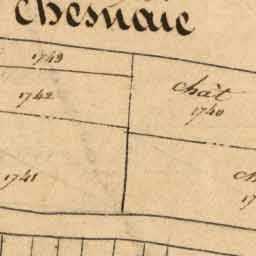 chesnaie
1743
1742
chât
1740
1741